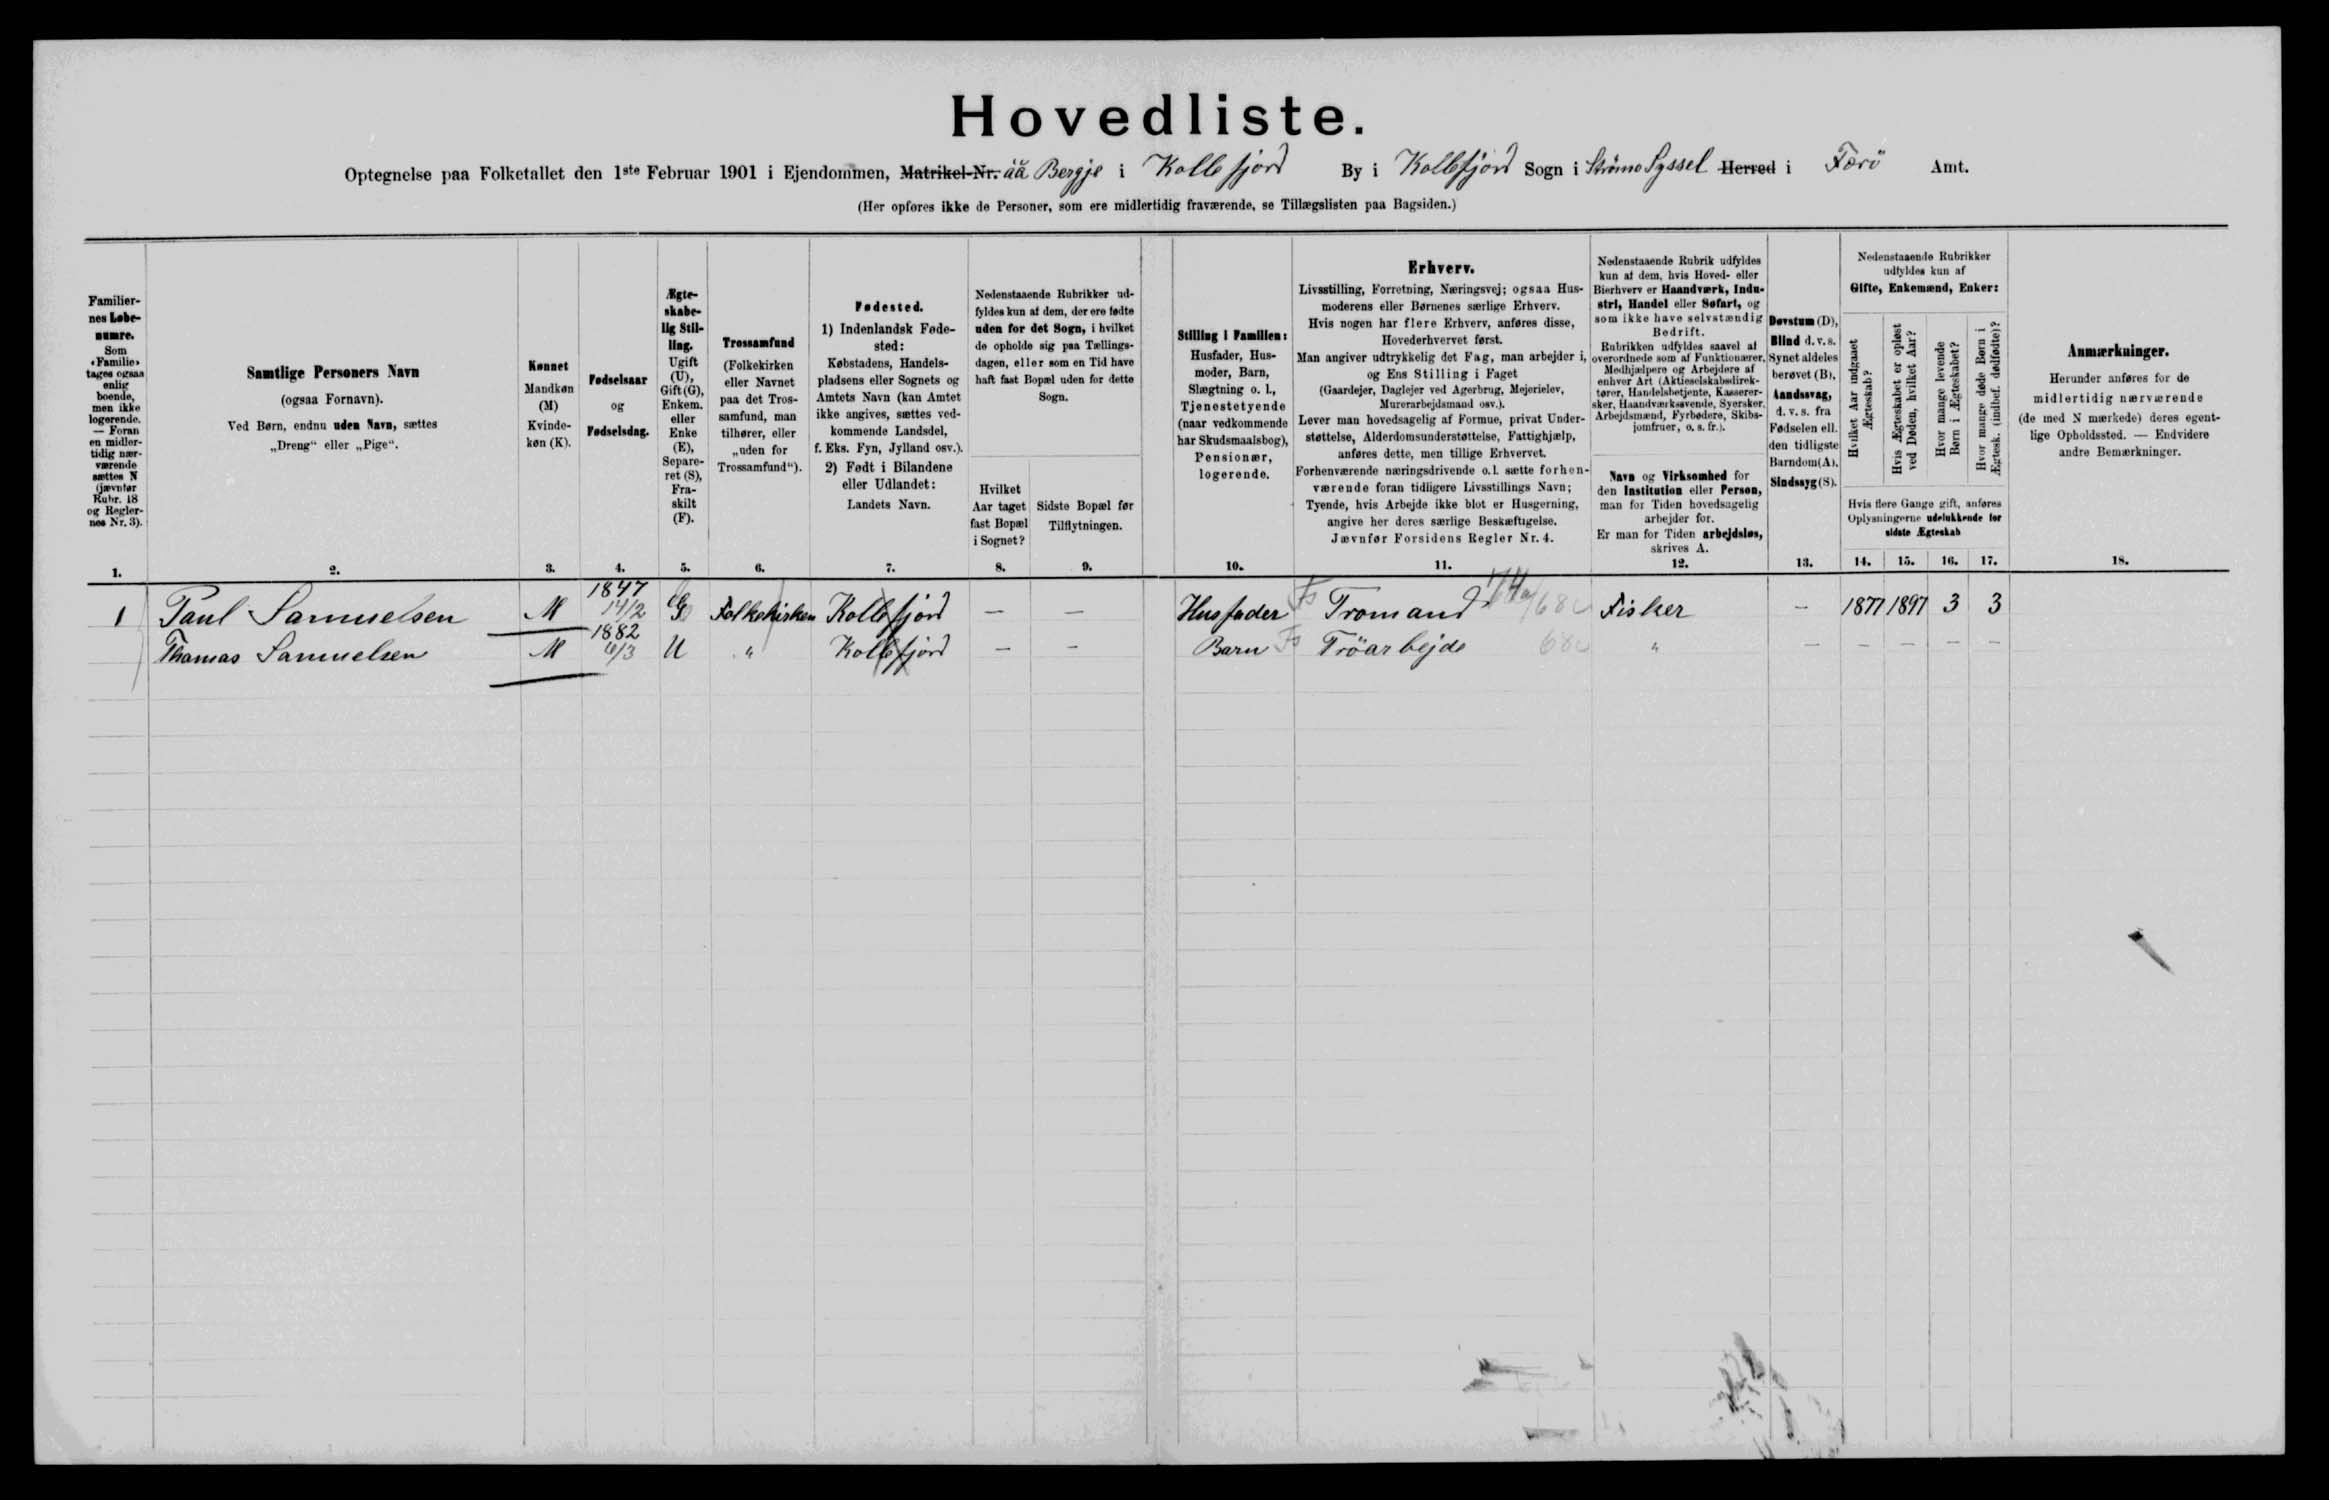 Hovedliste.
Optegnelse paa Folketallet den 1ste Februar 1901 i Ejendommen, Matrikel-Nr. åå Bergje i Kollefjord By i Kollefjord Sogn i Strömo Syssel Herred i Færö Amt.
(Her opføres ikke de Personer, som ere midlertidig fraværende, se Tillægslisten paa Bagsiden.)
Familier-
nes Løbe-
numre.
Som
«Familie»
tages ogsaa
enlig
boende,
men ikke
logerende.
— Foran
en midler-
tidig nær-
værende
sættes N
(jævnfør
Rubr. 18
og Regler-
nes Nr. 3).
1.
Samtlige Personers Navn
(ogsaa Fornavn).
Ved Børn, endnu uden Navn, sættes
„Dreng“ eller „Pige“.
2.
Kønnet
Mandkøn
(M)
Kvinde-
køn (K).
3.
Fødselsaar
og
Fødselsdag.
4.
Ægte-
skabe-
lig Stil-
ling.
Ugift
(U),
Gift (G),
Enkem.
eller
Enke
(E),
Separe-
ret (S),
Fra-
skilt
(F).
5.
Trossamfund
(Folkekirken
eller Navnet
paa det Tros-
samfund, man
tilhører, eller
„uden for
Trossamfund“).
6.
Fødested.
1) IndenlandskFøde-
sted:
Købstadens, Handels-
pladsens eller Sognets og
Amtets Navn (kan Amtet
ikke angives, sættes ved-
kommende Landsdel,
f. Eks. Fyn, Jylland osv.).
2) Født i Bilandene
eller Udlandet:
Landets Navn.
7.
Nedenstaaende Rubrikker ud-
fyldes kun af dem, der ere fødte
uden for det Sogn, i hvilket
de opholde sig paa Tællings-
dagen, eller som en Tid have
haft fast Bopæl uden for dette
Sogn.
Hvilket
Aar taget
fast Bopæl
i Sognet?
8.
Sidste Bopæl før
Tilflytningen.
9.
Stilling i Familien:
Husfader, Hus-
moder, Barn,
Slægtning o. l.,
Tjenestetyende
(naar vedkommende
har Skudsmaalsbog),
Pensionær,
logerende.
10.
Erhverv.
Livsstilling, Forretning, Næringsvej; ogsaa Hus-
moderens eller Børnenes særlige Erhverv.
Hvis nogen har flere Erhverv, anføres disse,
Hovederhvervet først.
Man angiver udtrykkelig det Fag, man arbejder i,
og Ens Stilling i Faget
(Gaardejer, Daglejer ved Agerbrug, Mejerielev,
Murerarbejdsmand osv.).
Lever man hovedsagelig af Formue, privat Under-
støttelse, Alderdomsunderstøttelse, Fattighjælp,
anføres dette, men tillige Erhvervet.
Forhenværende næringsdrivende o. l. sætte forhen-
værende foran tidligere Livsstillings Navn;
Tyende, hvis Arbejde ikke blot er Husgerning,
angive her deres særlige Beskæftigelse.
Jævnfør Forsidens Regler Nr. 4.
11.
Nedenstaaende Rubrik udfyldes
kun af dem, hvis Hoved- eller
Bierhverv er Haandværk, Indu-
stri, Handel eller Søfart, og
som ikke have selvstændig
Bedrift.
Rubrikken udfyldes saavel af
overordnede som af Funktionærer,
Medhjælpere og Arbejdere af
enhver Art (Aktieselskabsdirek-
tører, Handelsbetjente, Kasserer-
sker, Haandværksvende, Syersker,
Arbejdsmænd, Fyrbødere, Skibs-
jomfruer, o. s. fr.).
Navn og Virksomhed for
den Institution eller Person,
man for Tiden hovedsagelig
arbejder for.
Er man for Tiden arbejdsløs,
skrives A.
12.
Døvstum (D),
Blind d. v. s.
Synet aldeles
berøvet (B),
Aandssvag,
d. v. s. fra
Fødselen ell.
den tidligste
Barndom(A),
Sindssyg (S).
13.
Nedenstaaende Rubrikker
udfyldes kun af
Gifte, Enkemænd, Enker:
Hvilket Aar indgaaet
Ægteskab?
Hvis Ægteskabet er opløst
ved Døden, hvilket Aar?
Hvor mange levende
Børn i Ægteskabet?
Hvor mange døde Børn i
Ægtesk. (indbef. dødfødte)?
Hvis flere Gange gift, anføres
Oplysningerne udelukkende for
sidste Ægteskab
14. 15. 16. 17.
Anmærkninger.
Herunder anføres for de
midlertidig nærværende
(de med N mærkede) deres egent-
lige Opholdssted. — Endvidere
andre Bemærkninger.
18.
1 Paul Samuelsen M 1847 14/2 Folkekirken Kollefjord — — Husfader Fs Tromand 68c Fisker — 1877 1897 3 3
Thomas Samuelsen M 1882 6/3 U " Kollefjord — — Barn Fs Tröarbejde 68c " — — — — —